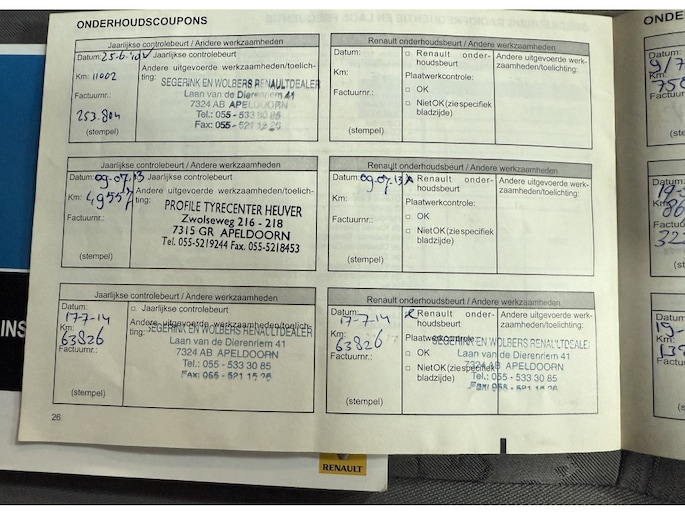 ONDERHOUDSCOUPONS
Jaarlijkse controlebeurt / Andere werkzaamheden
Datum:
Jaarlijkse controlebeurt
Andere uitgevoerde werkzaamheden/toelich-
ting:
Km: 11002
SEGERINK EN WOLBERS RENAULTDEALER
Laan van de Dierenriem 41
7324 AB APELDOORN
Tel.: 055 - 533 30 85
Fax: 055 - 521 15 26
Factuurnr.:
253.804
(stempel)
Renault onderhoudsbeurt / Andere werkzaamheden
Datum:
□ Renault onder-
houdsbeurt
Andere uitgevoerde werk-
zaamheden/toelichting:
Km:
Plaatwerkcontrole:
Factuurnr.:
□ OK
□ Niet OK (zie specifiek
bladzijde)
(stempel)
Jaarlijkse controlebeurt / Andere werkzaamheden
Datum: 09.07.13
Jaarlijkse controlebeurt
Andere uitgevoerde werkzaamheden/toelich-
ting:
Km: 49557
PROFILE TYRECENTER HEUVER
Zwolseweg 216 - 218
7315 GR APELDOORN
Tel. 055-5219244 Fax. 055-5218453
Factuurnr.:
(stempel)
Renault onderhoudsbeurt / Andere werkzaamheden
Datum: 09.07.13
□ Renault onder-
houdsbeurt
Andere uitgevoerde werk-
zaamheden/toelichting:
Km:
Plaatwerkcontrole:
Factuurnr.:
□ OK
□ Niet OK (zie specifiek
bladzijde)
(stempel)
Jaarlijkse controlebeurt / Andere werkzaamheden
Datum:
17-7-14
□ Jaarlijkse controlebeurt
Andere uitgevoerde werkzaamheden/toelich-
ting:
Km:
63826
SEGERINK EN WOLBERS RENAULTDEALER
Laan van de Dierenriem 41
7324 AB APELDOORN
Tel.: 055 - 533 30 85
Fax: 055 - 521 15 26
Factuurnr.:
(stempel)
Renault onderhoudsbeurt / Andere werkzaamheden
Datum:
17-7-14
Renault onder-
houdsbeurt
Andere uitgevoerde werk-
zaamheden/toelichting:
Km:
63826
Plaatwerkcontrole:
SEGERINK EN WOLBERS RENAULTDEALER
Laan van de Dierenriem 41
7324 AB APELDOORN
Tel.: 055 - 533 30 85
Fax: 055 - 521 15 26
Factuurnr.:
□ OK
□ Niet OK (zie specifiek
bladzijde)
(stempel)
26
RENAULT
INS
ONDE
Datum
Km:
Factu
(st
Datum
Km:
Factu
(st
Datum
Km:
Factu
(s